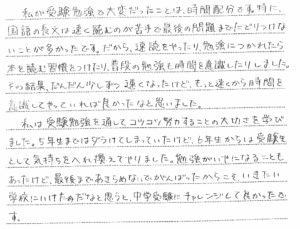 私が受験勉強で大変だったことは、時間配分です。特に、
国語の長文は速く読むのが苦手で最後の問題までたどりつけな
いことが多かったです。だから、速読をやったり、勉強につかれたら
本を読む習慣をつけたり、普段の勉強も時間を意識したりしました。
その結果、だんだん少しずつ速くなったけど、もっと速くから時間を
意識してやっていれば良かったなと思いました。
私は受験勉強を通してコツコツ努力することの大切さを学び
ました。5年生まではダラけてしまっていたけど、6年生からは受験生
として気持ちを入れ換えてやりました。勉強がいやになることも
あったけど、最後まであきらめないでがんばったからこそ、いきたい
学校にいけたのだなと思うと、中学受験にチャレンジして良かったで
す。